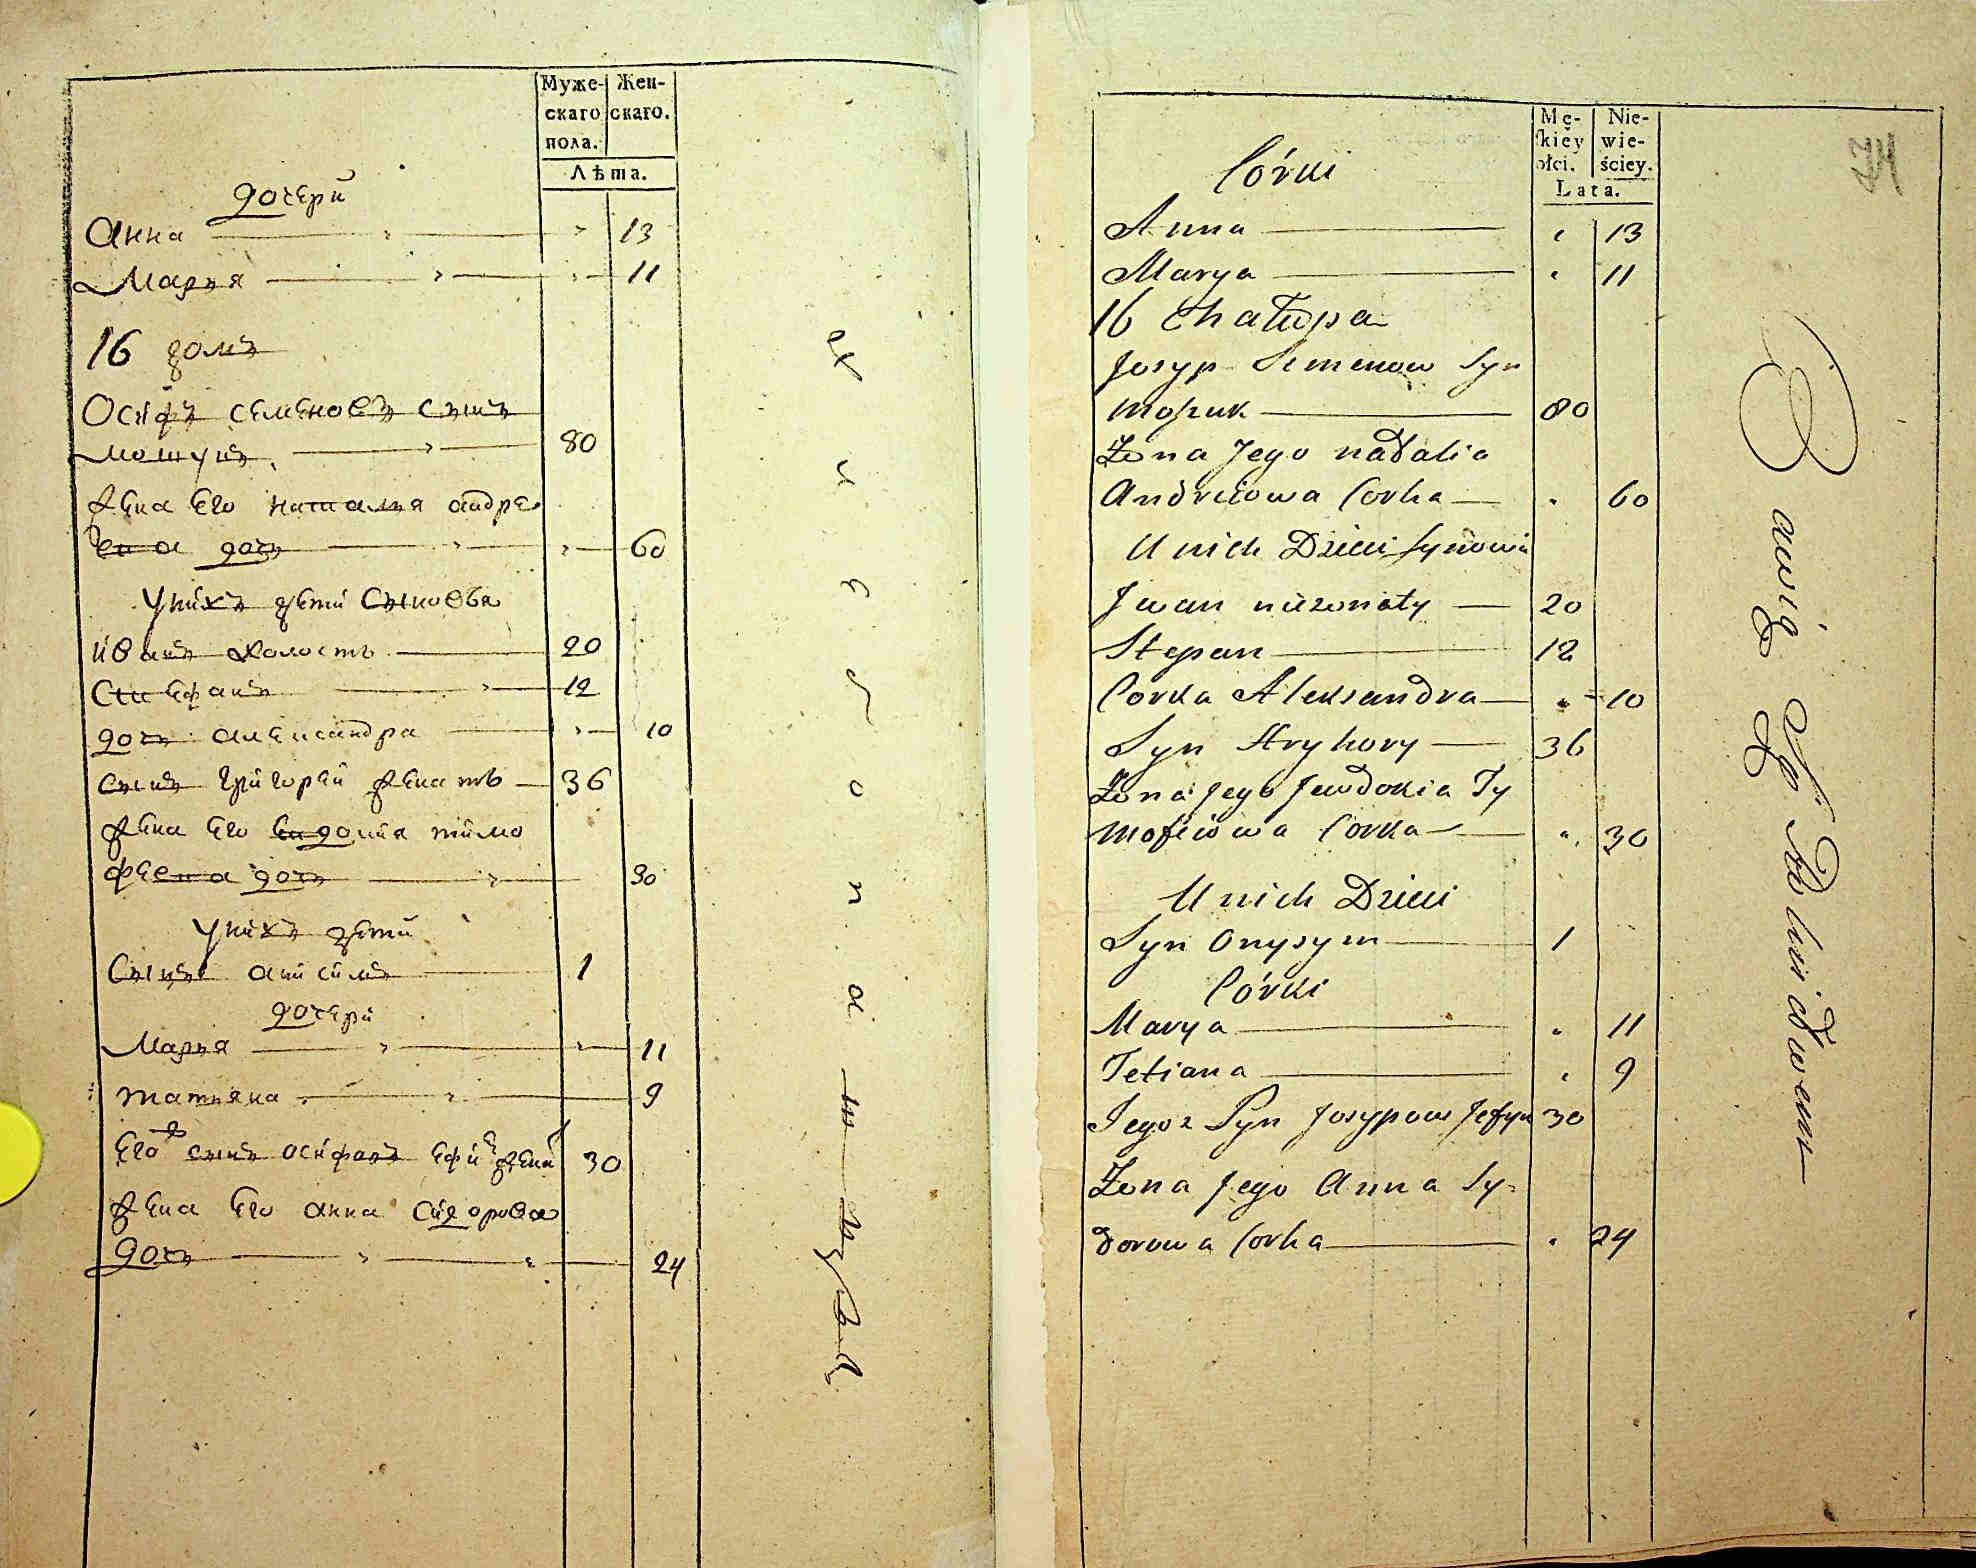 Муже-
скаго
пола.
Жен-
скаго.
Лѣта.
дочери
Анна 13
Марья 11
16 домъ
Осифъ семеновъ сынъ
80
жена его наталья андре
ева дочь 60
у нихъ дети Сыновья
иванъ холостъ 20
Стефанъ 12
дочь александра 10
сынъ григорей женатъ 36
жена его евдокия тимо
феева дочь 30
у нихъ дети
Сынъ анисимъ 1
дочери
Марья 11
татьяна 9
его ж сынъ осифовъ ефи 30
жена его анна сидорова
дочь 24
Mę-
skiéy
płci.
Nie-
wie-
ściey.
Lata.
74
Córki
Anna 13
Marya 11
16 Chałupa
Josyp Semenow Syn
80
Żona Jego nadalia
Andreiowa Corka 60
U nich Dzieci Synowie
Jwan niezonaty 20
Stepan 12
Corka Aleksandra 10
Syn Hryhory 36
Żona Jego Jewdokia Ty
mofeiowa Corka 30
U nich Dzieci
Syn Onysym 1
Córki
Marya 11
Tetiana 9
Jegoz Syn Josypow Jefym 30
Żona Jego Anna Sy-
dorowa Corka 24